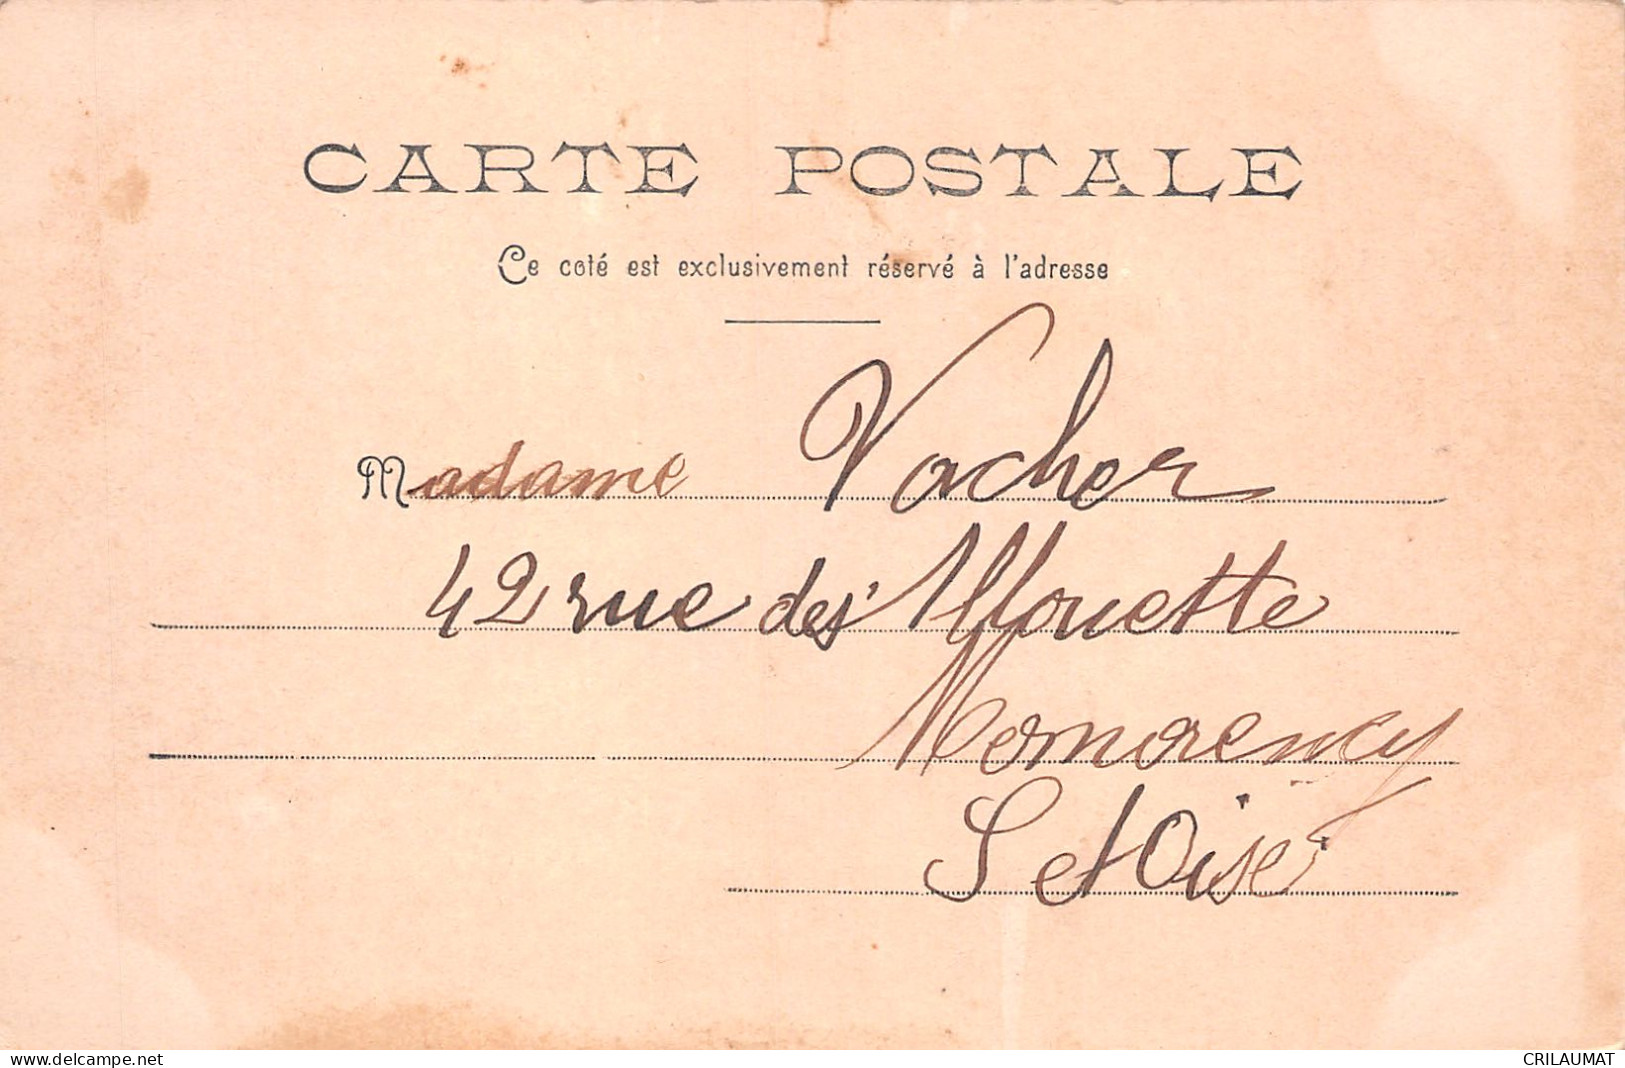 CARTE POSTALE
Ce coté est exclusivement réservé à l'adresse
Madame Vacher
42 rue des Mouette
Momorency
S et Oise
www.delcampe.net
CRILAUMAT